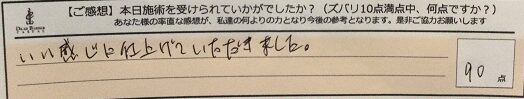 【ご感想】本日施術を受けられていかがでしたか?(ズバリ10点満点中、何点ですか?)
あなた様の率直な感想が、私達の何よりの力となり今後の参考となります。是非ご協力お願いします
いい感じに仕上げていただきました。
90 点